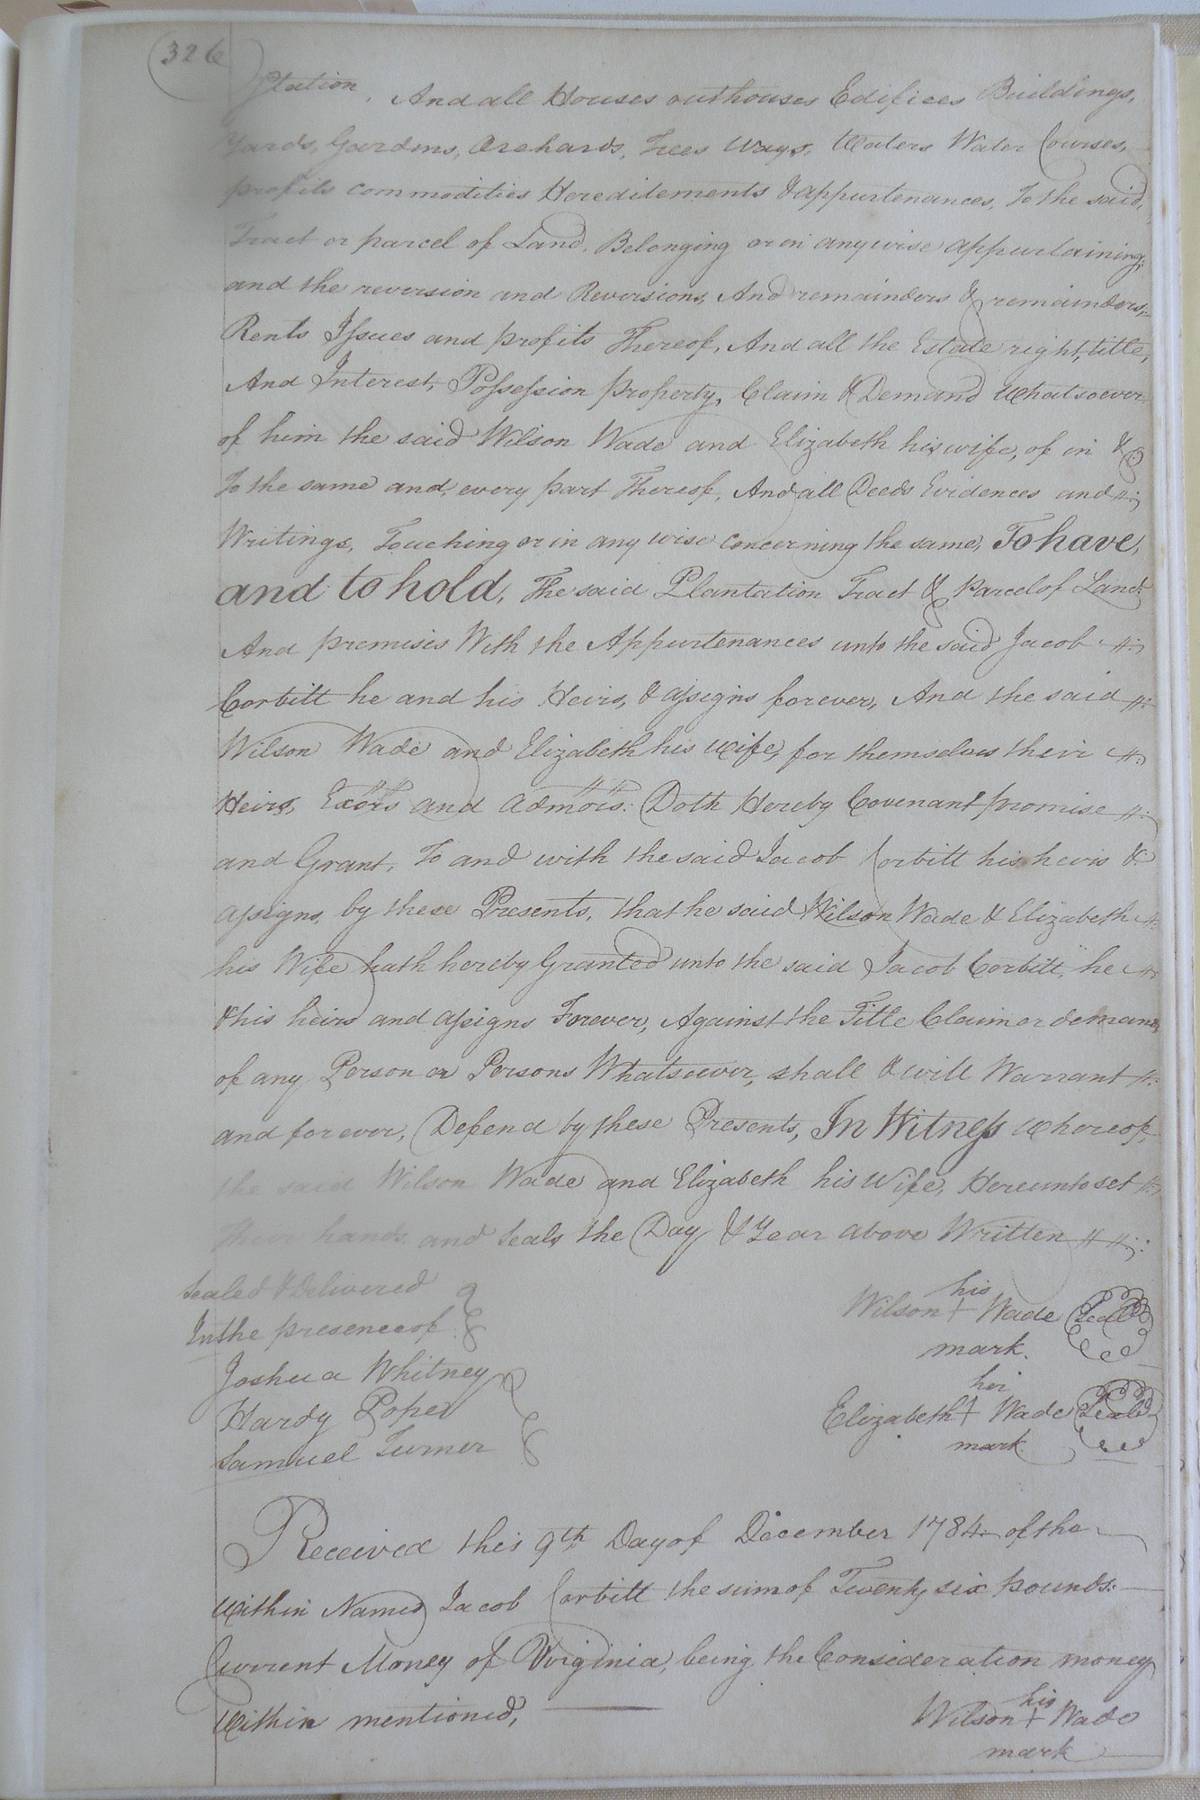 326
tation, And all Houses outhouses Edifices Buildings,
Yards, Gardens, Orchards, Trees Ways, Waters Water Courses,
profits commodities Hereditements & appurtenances, To the said,
Tract or parcel of Land, Belonging or in any wise appurtaining,
and the reversion and Reversions, And remainders & remainders,
Rents Issues and profits Thereof, And all the Estate right, title,
And Interest, Possession property, Claim & Demand Whatsoever
of him the said Wilson Wade and Elizabeth his wife, of in &
To the same and, every part Thereof, And all Deeds Evidences and
Writings, Touching or in any wise Concerning the same, To have,
and to hold, The said Plantation Tract & Parcel of Land
And premises With the Appurtenances unto the said Jacob
Corbitt he and his Heirs, & assigns forever, And the said
Wilson Wade and Elizabeth his Wife, for themselves their
Heirs, Exors and Admors. Doth Hereby Covenant promise
and Grant, To and with the said Jacob Corbitt his heirs &
assigns, by these Presents, that he said Wilson Wade & Elizabeth
his Wife hath hereby Granted unto the said Jacob Corbitt, he
& his heirs and assigns Forever, Against the Title Claim or deman
of any Person or Persons Whatsoever, shall & will Warrant
and forever, Defend by these Presents, In Witness Whereof,
the said Wilson Wade and Elizabeth his Wife, Hereunto set
their hands and Seals the Day & Year above Written
Sealed & Delivered
In the presence of
Joshua Whitney
Hardy Pope
Samuel Turner
his
Wilson + Wade Seal
mark.
her
Elizabeth + Wade Seal
mark
Received this 9th Day of December 1784 of the
Within Named Jacob Corbitt the sum of Twenty six pounds
Current Money of Virginia, being the Consideration money
Within mentioned,
his
Wilson + Wade
mark